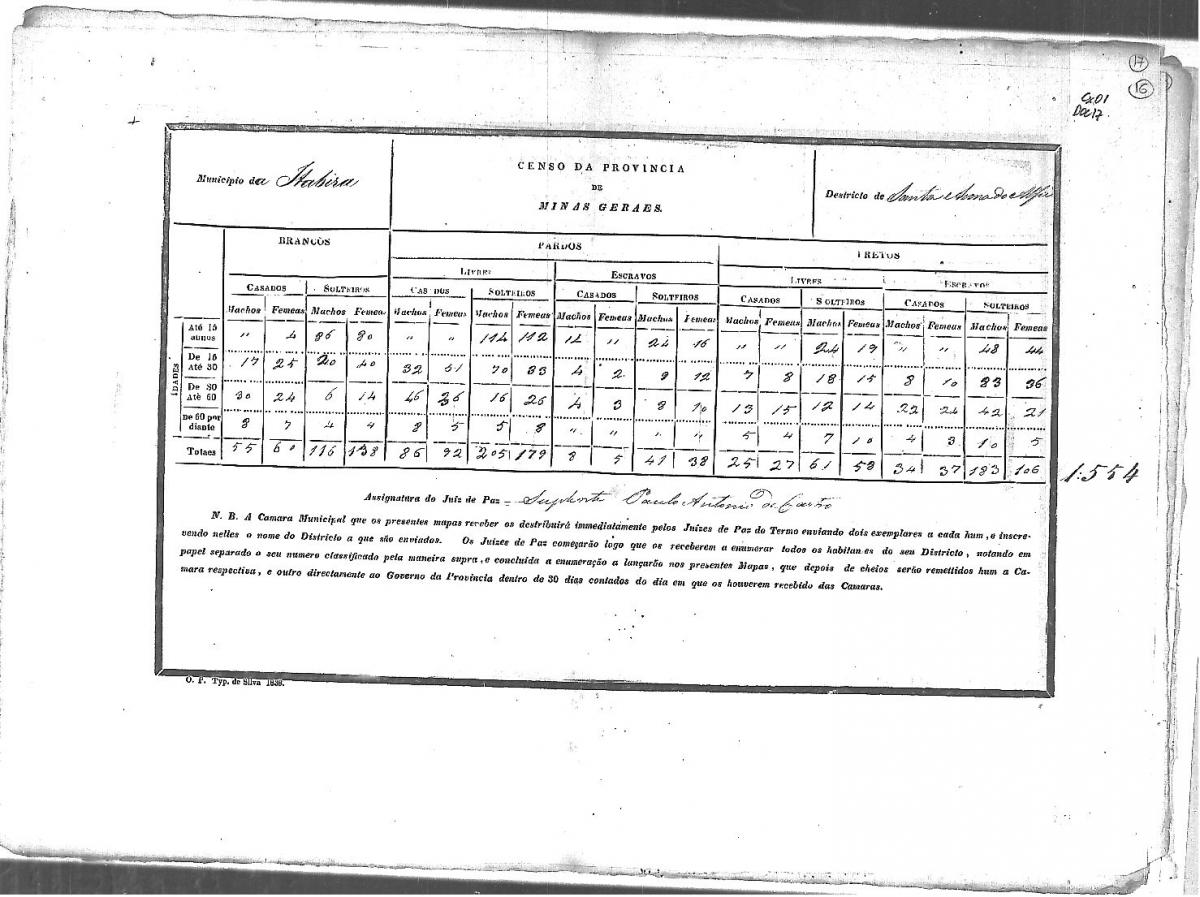 17
16
Cx01
Doc17
Municipio da Itabira
CENSO DA PROVINCIA
DE
MINAS GERAES.
Destricto de Santa Anna do Alfié
BRANCOS PARDOS PRETOS
LIVRES ESCRAVOS LIVRES ESCRAVOS
CASADOS SOLTEIROS CASADOS SOLTEIROS CASADOS SOLTEIROS CASADOS SOLTEIROS CASADOS SOLTEIROS
Machos Femeas Machos Femeas Machos Femeas Machos Femeas Machos Femeas Machos Femeas Machos Femeas Machos Femeas Machos Femeas Machos Femeas
IDADES
Até 15 annos " 4 86 80 " " 114 112 " 24 16 " " 24 19 " " 48 44
De 15 Até 30 17 25 20 40 32 51 70 33 4 2 9 12 7 8 18 15 8 10 83 36
De 30 Até 60 30 24 6 14 46 36 16 26 4 3 8 10 13 15 12 14 22 24 42 21
De 60 por diante 8 7 4 4 8 5 5 8 " " " " 5 4 7 10 4 3 10 5
Totaes 55 60 116 138 86 92 205 179 8 5 41 38 25 27 61 58 34 37 183 106
1:554
Assignatura do Juiz de Paz - Suplente Paulo Antonio de Castro
N. B. A Camara Municipal que os presentes mapas receber os destribuirá immediatamente pelos Juizes de Paz do Termo enviando dois exemplares a cada hum, e inscre-
vendo nelles o nome do Districto a que são enviados. Os Juizes de Paz começarão logo que os receberem a enumerar todos os habitan es do seu Districto, notando em
papel separado o seu numero classificado pela maneira supra, e concluida a enumeração a lançarão nos presentes Mapas, que depois de cheios serão remettidos hum a Ca-
mara respectiva, e outro directamente ao Governo da Provincia dentro de 30 dias contados do dia em que os houverem recebido das Camaras.
O. P. Typ. de Silva 1838.